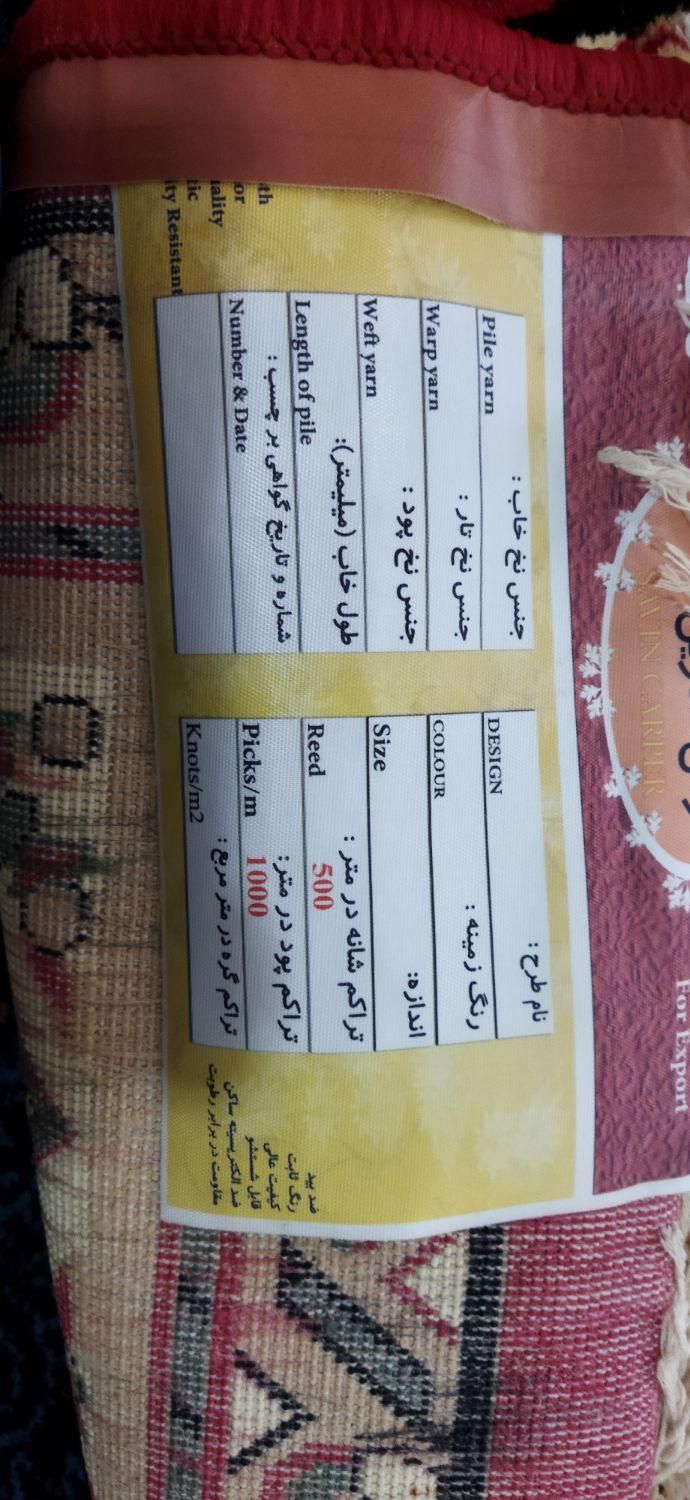 For Export
جنس نخ خاب :
Pile yarn
جنس نخ تار :
Warp yarn
جنس نخ پود :
Weft yarn
طول خاب (میلیمتر):
Length of pile
شماره و تاریخ گواهی بر چسب :
Number & Date
نام طرح :
DESIGN
رنگ زمینه :
COLOUR
اندازه:
Size
تراکم شانه در متر :
Reed 500
تراکم پود در متر:
Picks/m 1000
تراکم گره در متر مربع :
Knots/m2
ضد بید
رنگ ثابت
کیفیت عالی
قابل شستشو
ضد الکتریسیته ساکن
مقاومت در برابر رطوبت
Resistant